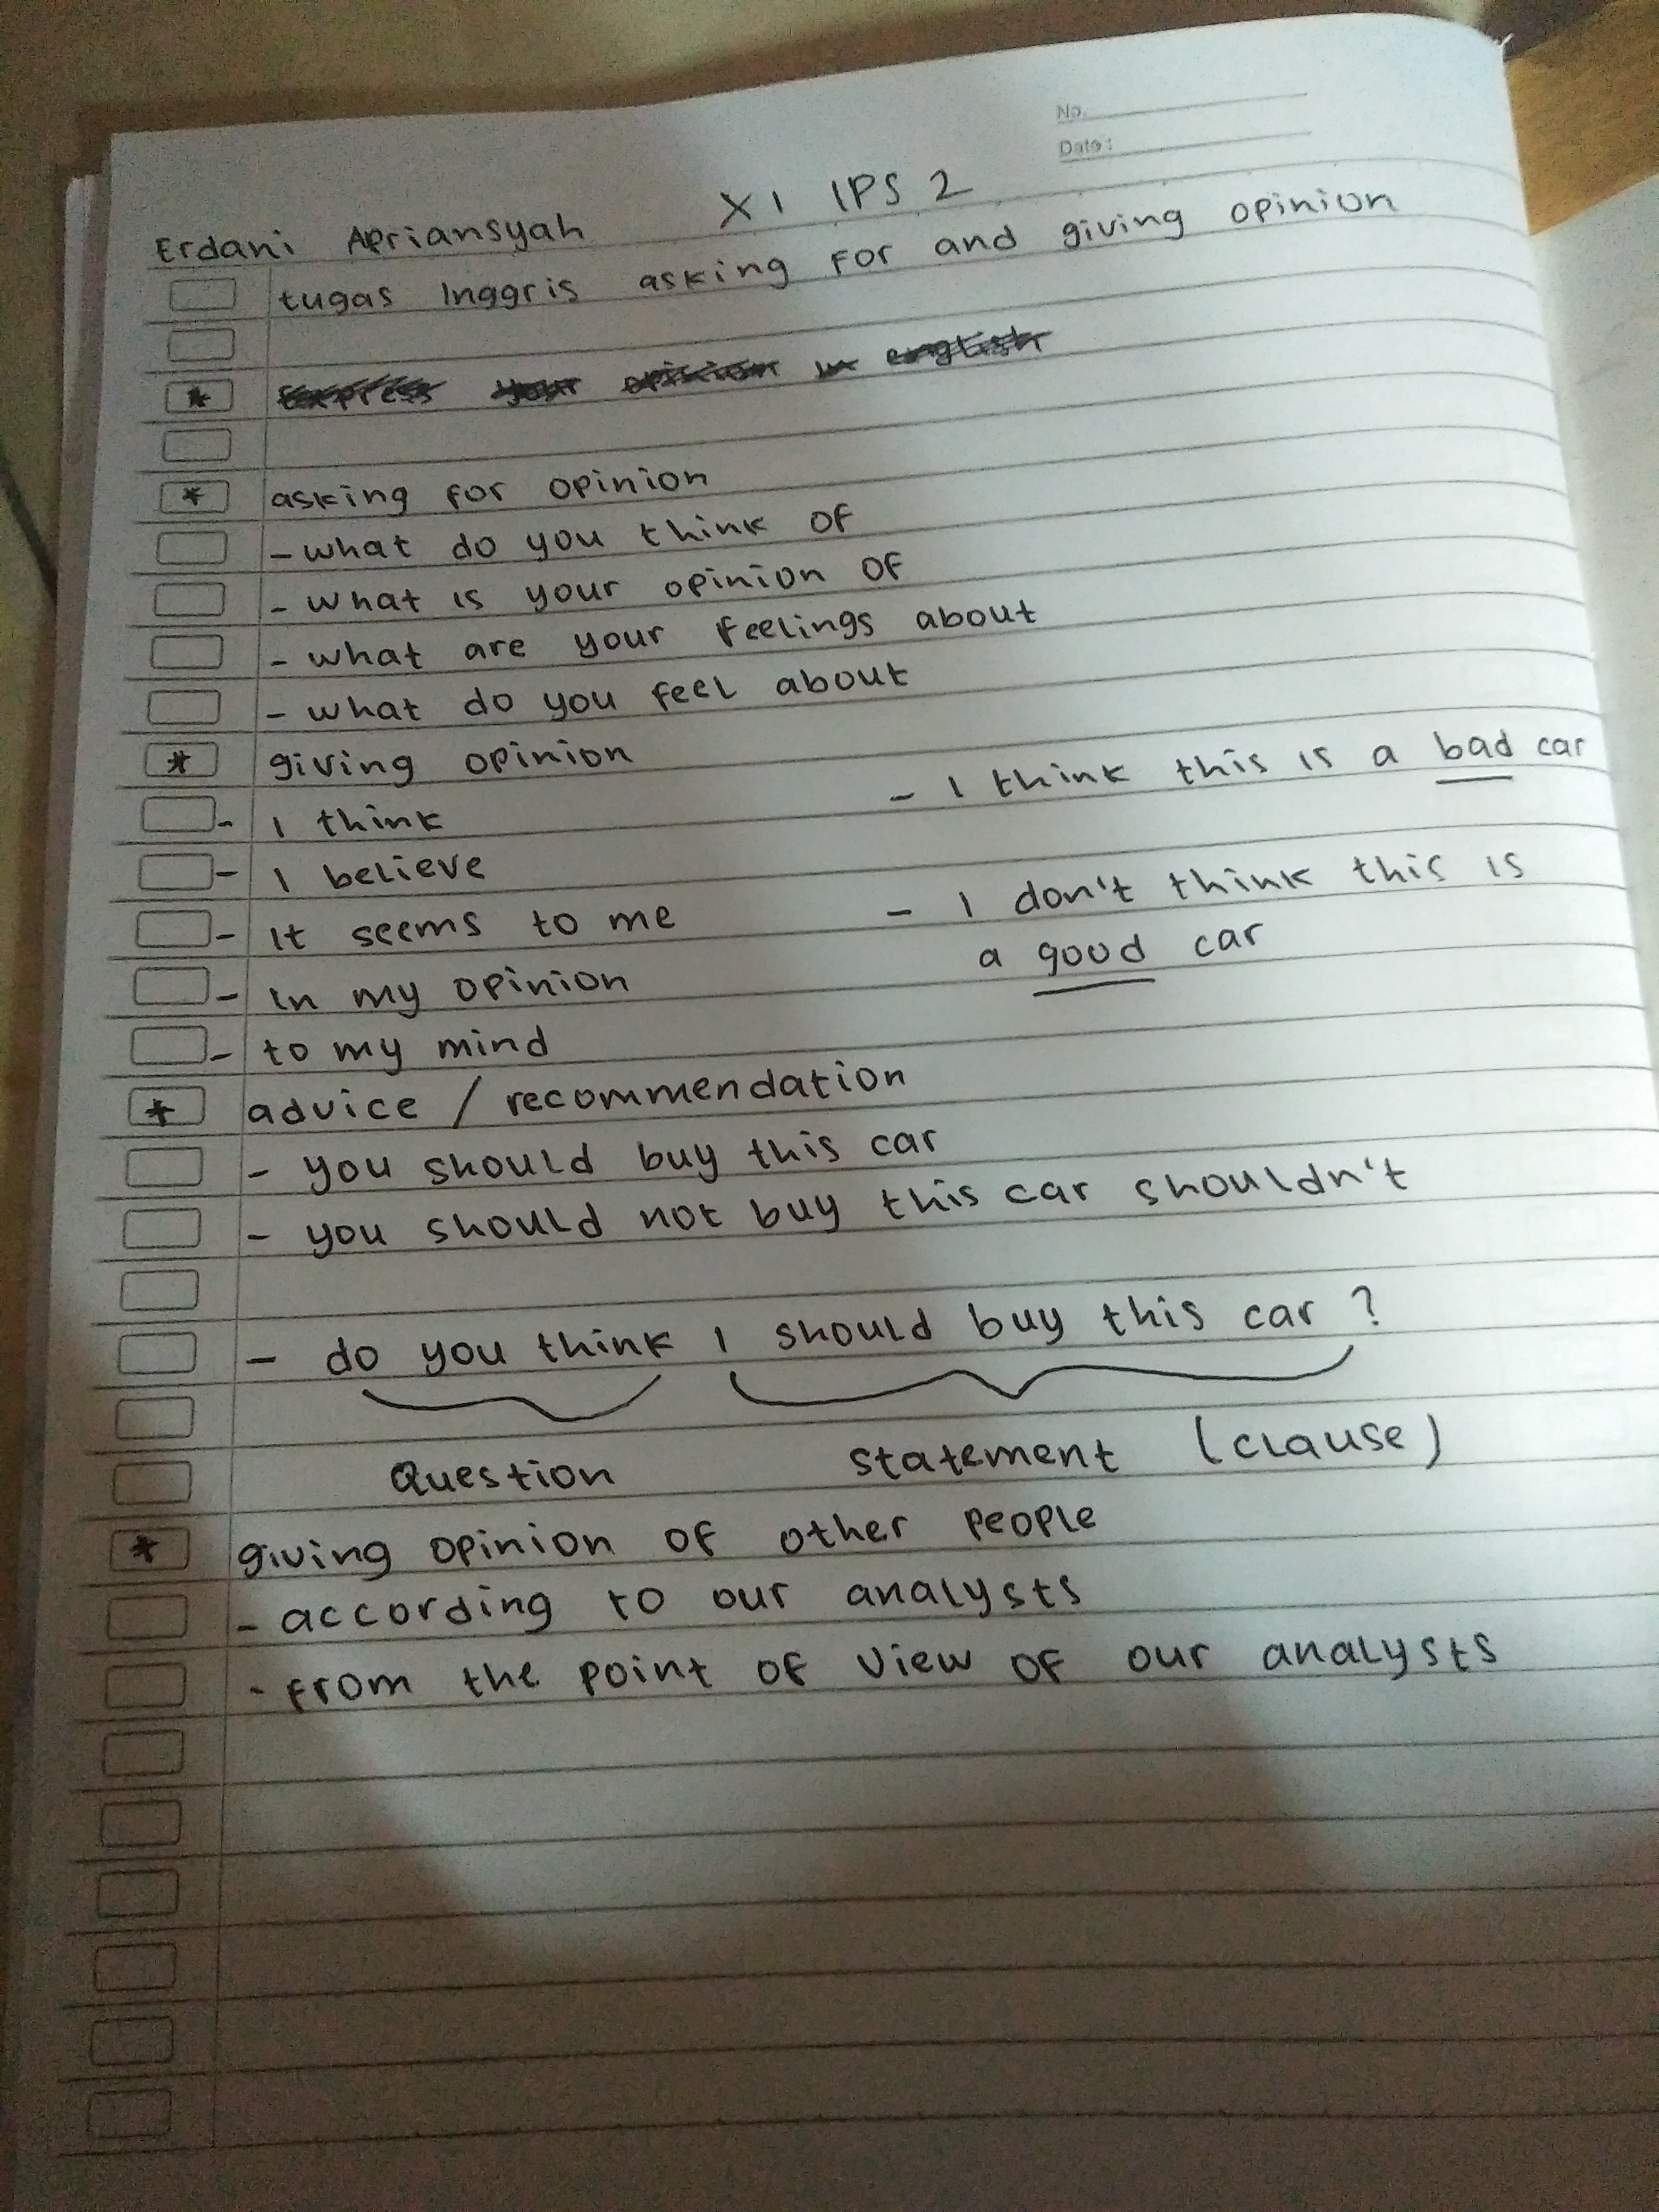 No.
Date:
Erdani Apriansyah XI IPS 2
tugas Inggris asking for and giving opinion
* Express your opinion in english
* asking for opinion
- what do you think of
- what is your opinion of
- what are your feelings about
- what do you feel about
* giving opinion
- I think
- I believe
- It seems to me
- In my opinion
- to my mind
- I think this is a bad car
- I don't think this is
a good car
* advice / recommendation
- you should buy this car
- you should not buy this car shouldn't
- do you think I should buy this car ?
Question statement (clause)
* giving opinion of other people
- according to our analysts
- from the point of view of our analysts